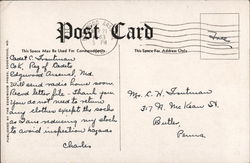 Post Card
This Space May Be Used For Correspondence
This Space For Address Only
Cadet C. Trautman
Co K, Reg. of Cadets
Edgewood Arsenal, Md.
Will send radio home soon
Recd letter file. Thank you
You do not need to return
any clothes except the socks
as I am reducing my stock
to avoid inspection
Charles
Free
Mr. C. H. Trautman
317 N. McKean St.
Butler,
Penna.